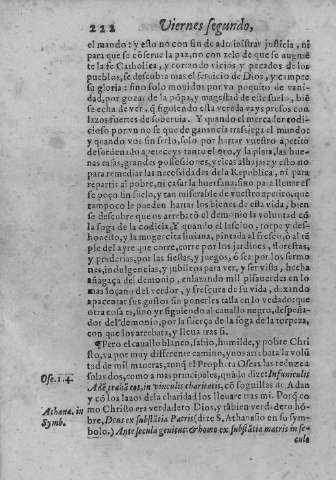 222 Viernes segundo,
el mando: y esto no con fin de administrar justicia, ni
para que se cõserue la paz, no con zelo de que se augmẽ
te la fe Catholica, y cortando vicios y pecados de los
pueblos, se descubra mas el seruicio de Dios, y siempre
su gloria: sino solo mouidos por vn poquito de vani-
dad, por gozar de la põpa, y magestad de este suelo, biẽ
se echa de ver, q̃ siguiendo esta vereda vays presos con
lazos fuertes de soberuia. Y quando el mercader codi-
cioso por vn no se que de ganancia trasiega el mundo:
y quando vos sin serlo, solo por hartar vuestro apetito
desordenado apeteceys tanto el oro, y la plata, las bue-
nas casas, grandes possessiones, y ricas alhajas: y esto no
para remediar las necesidades de la Republica, ni para
repartir al pobre, ni casar la huerfana: sino para llenar esse
poço sin suelo, y tan miserable de vuestro apetito, que
tampoco le pueden hartar los bienes de esta vida, bien
se descubre que os arrebató el demonio la voluntad cõ
la soga de la codicia. Y quando el lasciuo, torpe y des-
honesto, y la mugercita liuiana, pintada al fresco, ò al tẽ
ple del ayre que corre, corre por los jardines, florestas,
y praderias, por las fiestas, y juegos, ò sea por los sermo
nes, indulgencias, y jubileos para ver, y ser vista, hecha
añagaça del demonio, enlazando mil pisauerdes en lo
mas loçano del verdor, y frescura de su vida, dexando
apacentar sus gustos sin ponerles talla en lo vedado: que
otra cosa es, sino yr siguiendo al cauallo negro, despeña-
dor del demonio, por la fuerça de la soga de la torpeza,
con que los arrebata, y lleua tras si.
¶Pero el cauallo blanco, sabio, humilde, y pobre Chri
sto, va por muy differente camino, y nos arrebata la volũ
tad de mil maneras, con el Propheta Oseas las reduzea
solas dos, como a mas principales, quãdo dize: In funiculis
Ose.1 4. Adã, trahã eos, in vinculis charitatis, cõ soguillas de Adan
y cõ los lazos de la charidad los lleuare tras mi. Porq̃ co
Athana. in mo Christo era verdadero Dios, y tãbien verdadero hõ-
Symb. bre, Deus ex substãtia Patris (dize S. Athanasio en su sym-
bolo.) Ante secula genitus: & homo ex substãtia matris in se-
cula